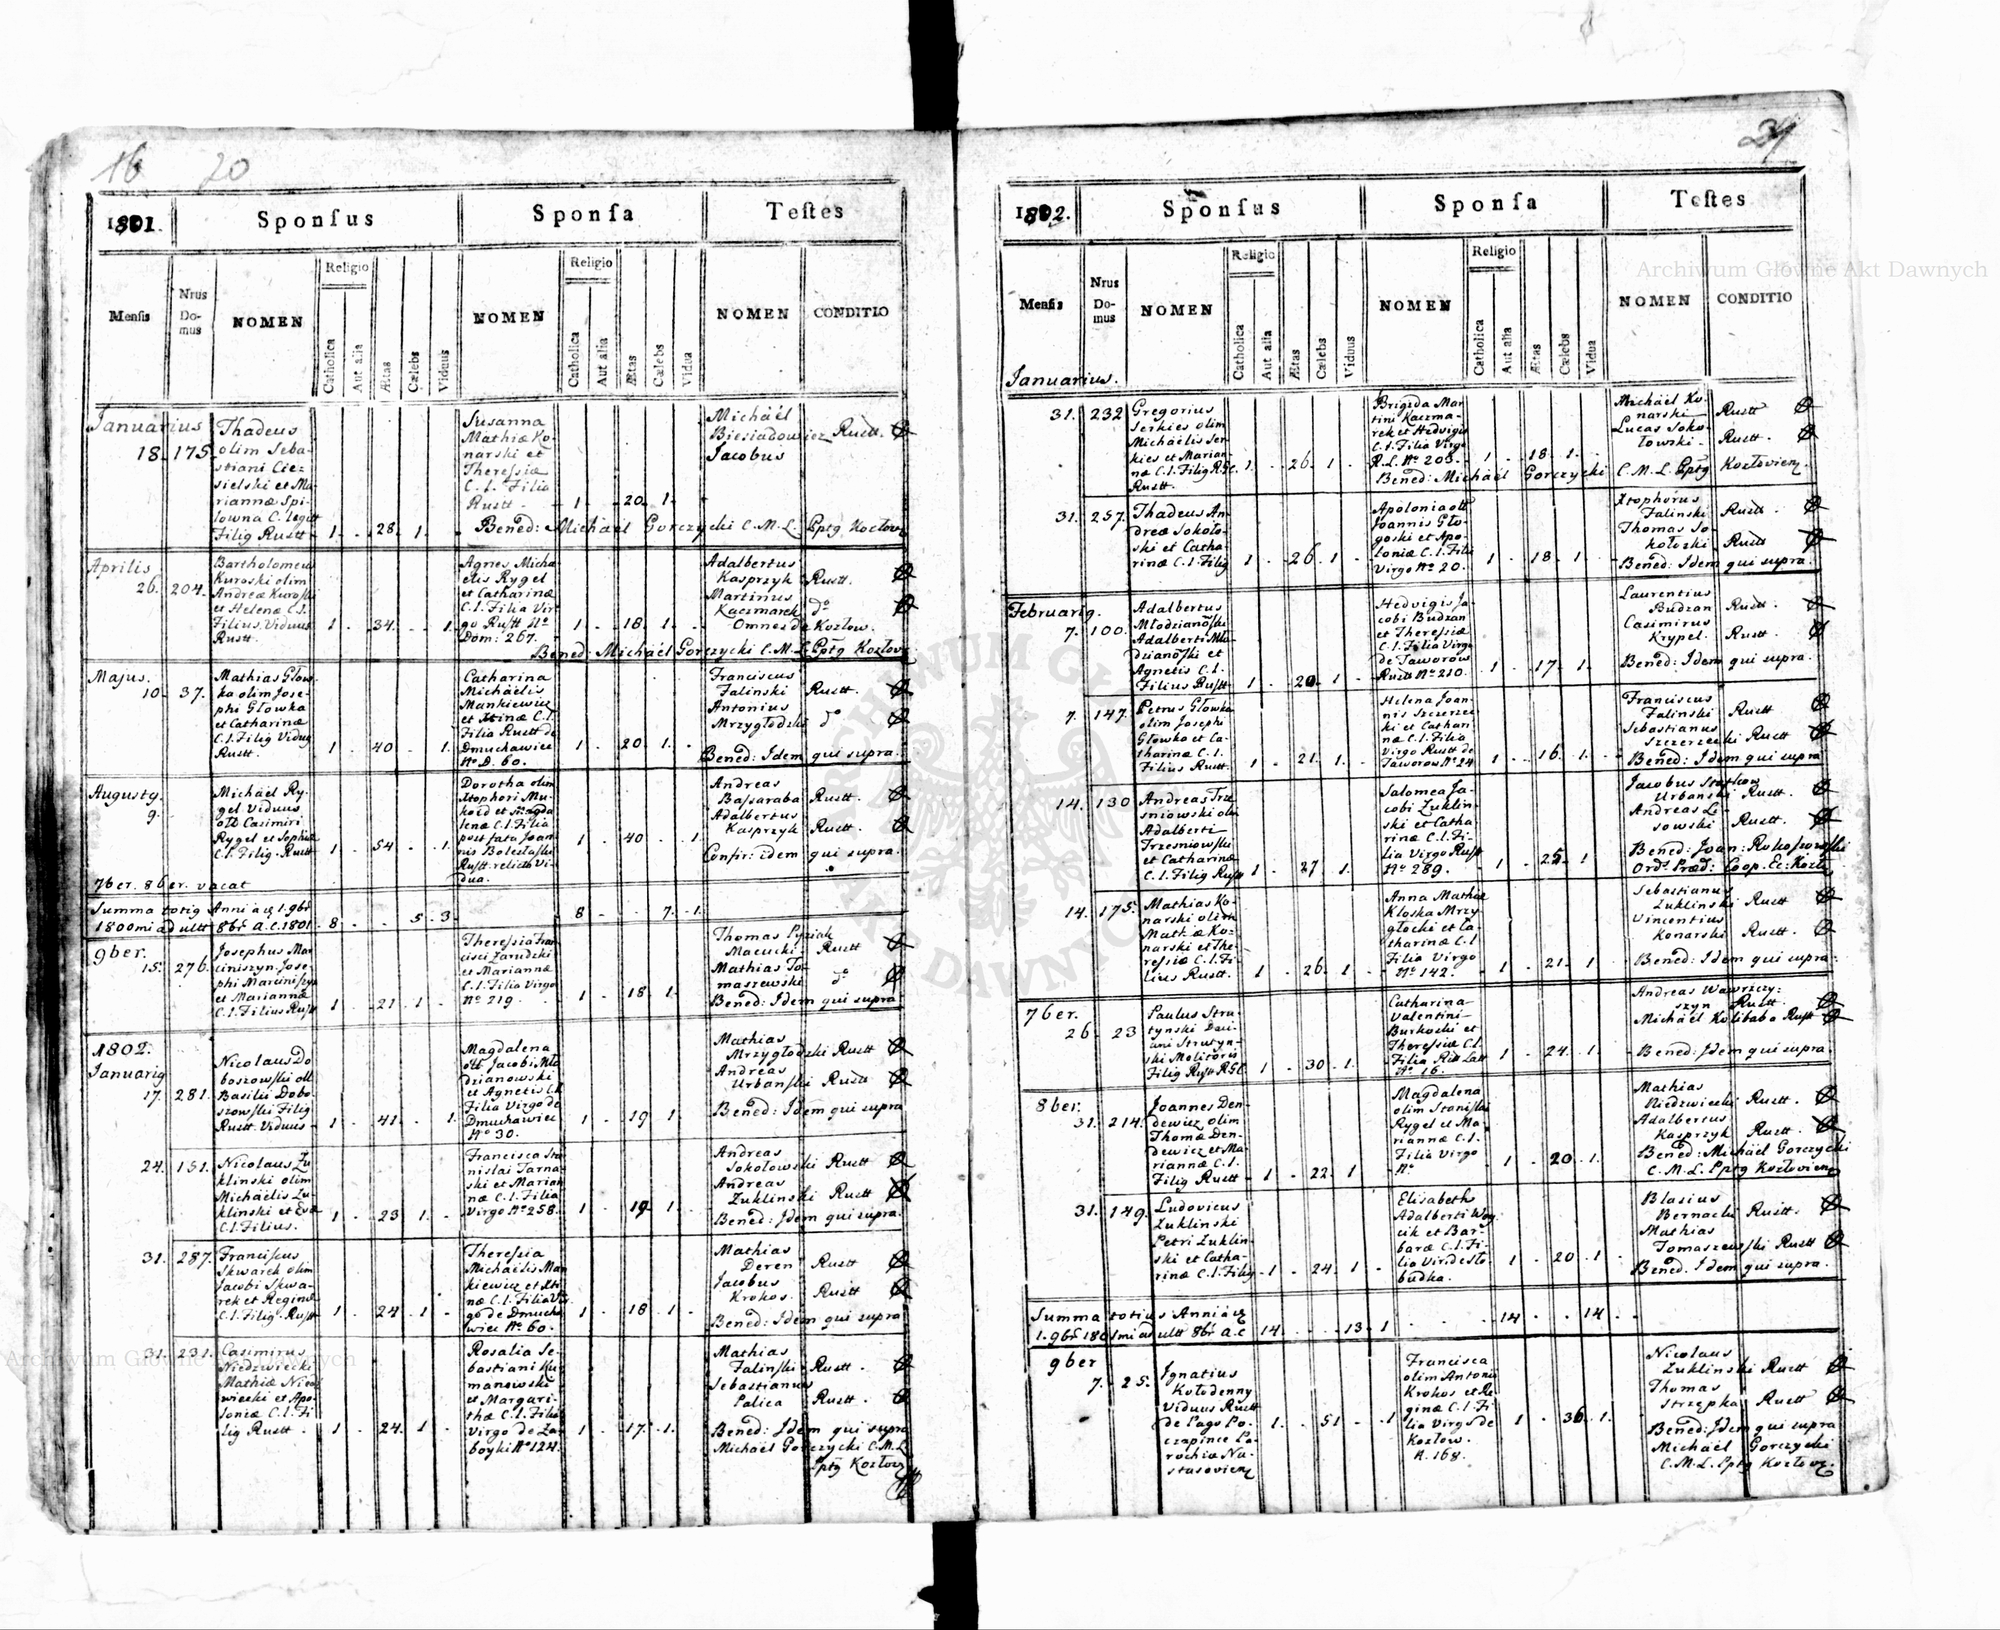 16 20
1801. Sponſus Sponſa Teſtes
Menſis Nrus Domus NOMEN Religio Catholica Aut alia Ætas Cælebs Viduus NOMEN Religio Catholica Aut alia Ætas Cælebs Vidua NOMEN CONDITIO
Januarius
18. 175.
Thadeus
olim Seba-
stiani Cie-
sielski et Ma-
riannæ Spi-
lowna C. legitt
Filig Rustt
1. 28. 1.
Susanna
Mathiæ Ko-
narski et
Theressiæ
C. l. Filia
Rustt
1. 20. 1.
Michäel
Biesiadowicz Rustt.
Jacobus
Bened: Michäel Gorczycki C.M.L. Pptg Kozlov
Aprilis
26. 204.
Bartholomeus
Kuroski olim
Andreæ Kuroſki
et Helenæ C.l.
Filius Viduus
Rustt.
1. 34. 1.
Agnes Micha
elis Rygel
et Catharinæ
C.l. Filia Vir
go Rustt No
Dom: 267.
1. 18. 1.
Adalbertus
Kasprzyk Rustt.
Martinus
Kaczmarek do
Omnes de Kozlow.
Bened: Michäel Gorczycki C.M.L. Pptg Kozlov
Majus.
10. 37.
Mathias Głow
ka olim Jose-
phi Głowka
et Catharinæ
C.l. Filig Vidug
Rustt.
1. 40. 1.
Catharina
Michäelis
Mankiewicz
et Xtinæ C.l.
Filia Rustt de
Dmuchawiec
No D. 60.
1. 20. 1.
Franciscus
Falinski Rustt.
Antonius
Mrzygłodzki do
Bened: Idem qui supra.
Augustg.
9.
Michäel Ry-
gel Viduus
ott Casimiri
Rygel et Sophiæ
C.l. Filig. Rustt
1. 54. 1.
Dorotha olim
Xtophori Mu-
koid et Magda
lenæ C.l. Filia
post fata Joan
nis Bolestaſki
Rustt. relicta Vi-
dua.
1. 40. 1.
Andreas
Baſsaraba Rustt.
Adalbertus
Kasprzyk Rustt.
Confir: idem qui supra.
7ber. 8ber. vacat
Summa totig Anni aq 1. 9br
1800mi ad ultt 8br A.C. 1801. 8. 5. 3. 8 7. 1.
9ber.
15. 276.
Josephus Mar
ciniszyn Jose-
phi Marciniszyn
et Mariannæ
C.l. Filius Rustt
1. 21. 1.
Theressia Fran
cisci Zarudzki
et Mariannæ
C.l. Filia Virgo
No 219.
1. 18. 1.
Thomas Pyziak
Macucki Rustt
Mathias To-
maszewski do
Bened: Idem qui supra
1802.
Januarig
17. 281.
Nicolaus Do
boszowſki ott
Basilii Dobo-
szowſki Filig
Rustt. Viduus
1. 41. 1.
Magdalena
ott Jacobi Mło
dzianowski
et Agnetis C.l.
Filia Virgo de
Dmuchawiec
No 30.
1. 19 1
Mathias
Mrzygłodzki Rustt
Andreas
Urbanſki Rustt
Bened: Idem qui supra
24. 151.
Nicolaus Zu
klinski olim
Michäelis Zu-
klinski et Evæ
C.l. Filius.
1. 23 1.
Francisca Sta
nislai Tarna-
ski et Marian
næ C.l. Filia
Virgo No 258.
1. 19 1.
Andreas
Sokołowski Rustt
Andreas
Zuklinski Rustt
Bened: Idem qui supra.
31. 287.
Franciscus
Skwarek olim
Jacobi Skwa-
rek et Reginæ
C.l. Filig. Rustt
1 24 1
Theressia
Michäelis Man
kiewicz et Xti-
næ C.l. Filia Vir
go de Dmucha
wiec No 60.
1 18 1
Mathias
Deren Rustt
Jacobus
Krokos. Rustt
Bened: Idem qui supra
31. 231.
Casimirus
Niedzwiecki
Mathiæ Nied
wiecki et Apo-
loniæ C.l. Fi
lig Rustt.
1 24 1
Rosalia Se-
bastiani Kur
manowski
et Margari-
thæ C.l. Filia
Virgo de Za-
boyki No 124.
1. 17. 1.
Mathias
Falinſki Rustt.
Sebastianus
Palica Rustt.
Bened: Idem qui supra
Michäel Gorczycki C.M.L.
Pptg Kozlov
1802. Sponſus Sponſa Teſtes
Menſis Nrus Domus NOMEN Religio Catholica Aut alia Ætas Cælebs Viduus NOMEN Religio Catholica Aut alia Ætas Cælebs Vidua NOMEN CONDITIO
Januarius.
31. 232
Gregorius
Serkies olim
Michäelis Ser-
kies et Marian-
næ C.l. Filig R.Gc.
Rustt.
1. 26. 1.
Brigida Mar
tini Kaczma-
rek et Hedvigis
C.l. Filia Virgo
R.L. No 203.
1. 18. 1.
Michäel Ko-
narski Rustt
Lucas Soko-
lowski Rustt.
C.M.L. Pptg Kozłovien.
Bened: Michäel Gorczycki
31. 257.
Thadeus An-
dreæ Sokoło-
ski et Catha-
rinæ C.l. Filig
1 26 1
Apolonia ott
Joannis Gło-
goski et Apo-
loniæ C.l. Filia
Virgo No 20.
1. 18 1.
Xtophorus
Falinski Rustt.
Thomas So-
kołozki Rustt
Bened: Idem qui supra.
Februarig.
7. 100.
Adalbertus
Młodzianoſki
Adalberti Mło-
dzianoſki et
Agnetis C.l.
Filius Rustt
1. 20. 1.
Hedvigis Ja-
cobi Budzan
et Theressiæ
C.l. Filia Virgo
de Jaworow
Rustt No 210.
1. 17. 1.
Laurentius
Budzan Rustt.
Casimirus
Krypel. Rustt.
Bened: Idem qui supra.
7. 147.
Petrus Głowka
olim Josephi
Głowka et Ca-
tharinæ C.l.
Filius Rustt.
1. 21. 1.
Helena Joan
nis Szczerzec
ki et Cathari
næ C.l. Filia
Virgo Rustt de
Jaworow No 24
1. 16. 1.
Franciscus
Falinski Rustt
Sebastianus
Szczerzecki Rustt
Bened: Idem qui supra
14. 130
Andreas Trze
sniowski olim
Adalberti
Trzesniowſki
et Catharinæ
C.l. Filig Rustt
1. 27 1.
Salomea Ja-
cobi Zuklin-
ski et Catha
rinæ C.l. Fi-
lia Virgo Rustt
No 289.
1 25. 1
Jacobus Stoſkow
Urbanski Rustt.
Andreas Li-
sowski Rustt.
Bened: Joan: Rokoſsowski
Ord: Præd: Coop. Ec: Kozlo.
14. 175.
Mathias Ko-
narski olim
Mathiæ Ko-
narski et The-
ressiæ C.l. Fi-
lius Rustt.
1 26. 1
Anna Mathiæ
Kloska Mrzy
głocki et Ca-
tharinæ C.l.
Filia Virgo
No 142.
1 21. 1
Sebastianus
Zuklinski Rustt
Vincentius
Konarski Rustt.
Bened: Idem qui supra.
7ber.
26. 23
Paulus Stru
tynski Dami
ani Strutyn-
ski Molitoris
Filig Rustt R.Gc.
1 30 1.
Catharina
Valentini
Burkocki et
Theressiæ C.l.
Filia Rit. Latt
No 16.
1 24. 1.
Andreas Wawrzczy:
szyn Rustt.
Michäel Kolibaba Rustt
Bened: Idem qui supra
8ber.
31. 214.
Joannes Den-
dewicz olim
Thomæ Den-
dewicz et Ma-
riannæ C.l.
Filig Rustt
1 22. 1
Magdalena
olim Stanislai
Rygel et Ma-
riannæ C.l.
Filia Virgo
No
1 20 1.
Mathias
Niedzwiecki Rustt.
Adalbertus
Kasprzyk Rustt.
Bened: Michäel Gorczycki
C.M.L. Pptg Kozłovien
31. 149.
Ludovicus
Zuklinski
Petri Zuklin-
ski et Catha-
rinæ C.l. Filig
1 24. 1
Elisabetha
Adalberti Woy
cik et Bar-
baræ C.l. Fi-
lia Viridesto
budka.
1 20 1
Blasius
Bernacki Rustt.
Mathias
Tomaszewſki Rustt
Bened. Idem qui supra.
Summa totius Anni aq
1. 9br 1801mi ad ultt 8br A.C. 14. 13. 1 14 14
9ber
7. 25.
Ignatius
Kołodenny
Viduus Rustt
de Pago Po-
czapince Pa-
rochiæ Na-
stasovien
1. 51. 1
Francisca
olim Antonii
Krokos et Re
ginæ C.l. Fi-
lia Virgo de
Kozłow.
N. 168.
1 36. 1.
Nicolaus
Zuklinski Rustt
Thomas
Strzępka Rustt
Bened: Idem qui supra
Michäel Gorczycki
C.M.L. Pptg Kozlov.
Archiwum Główne Akt Dawnych
Archiwum Główne Akt Dawnych
ARCHIWUM GŁÓWNE AKT DAWNYCH